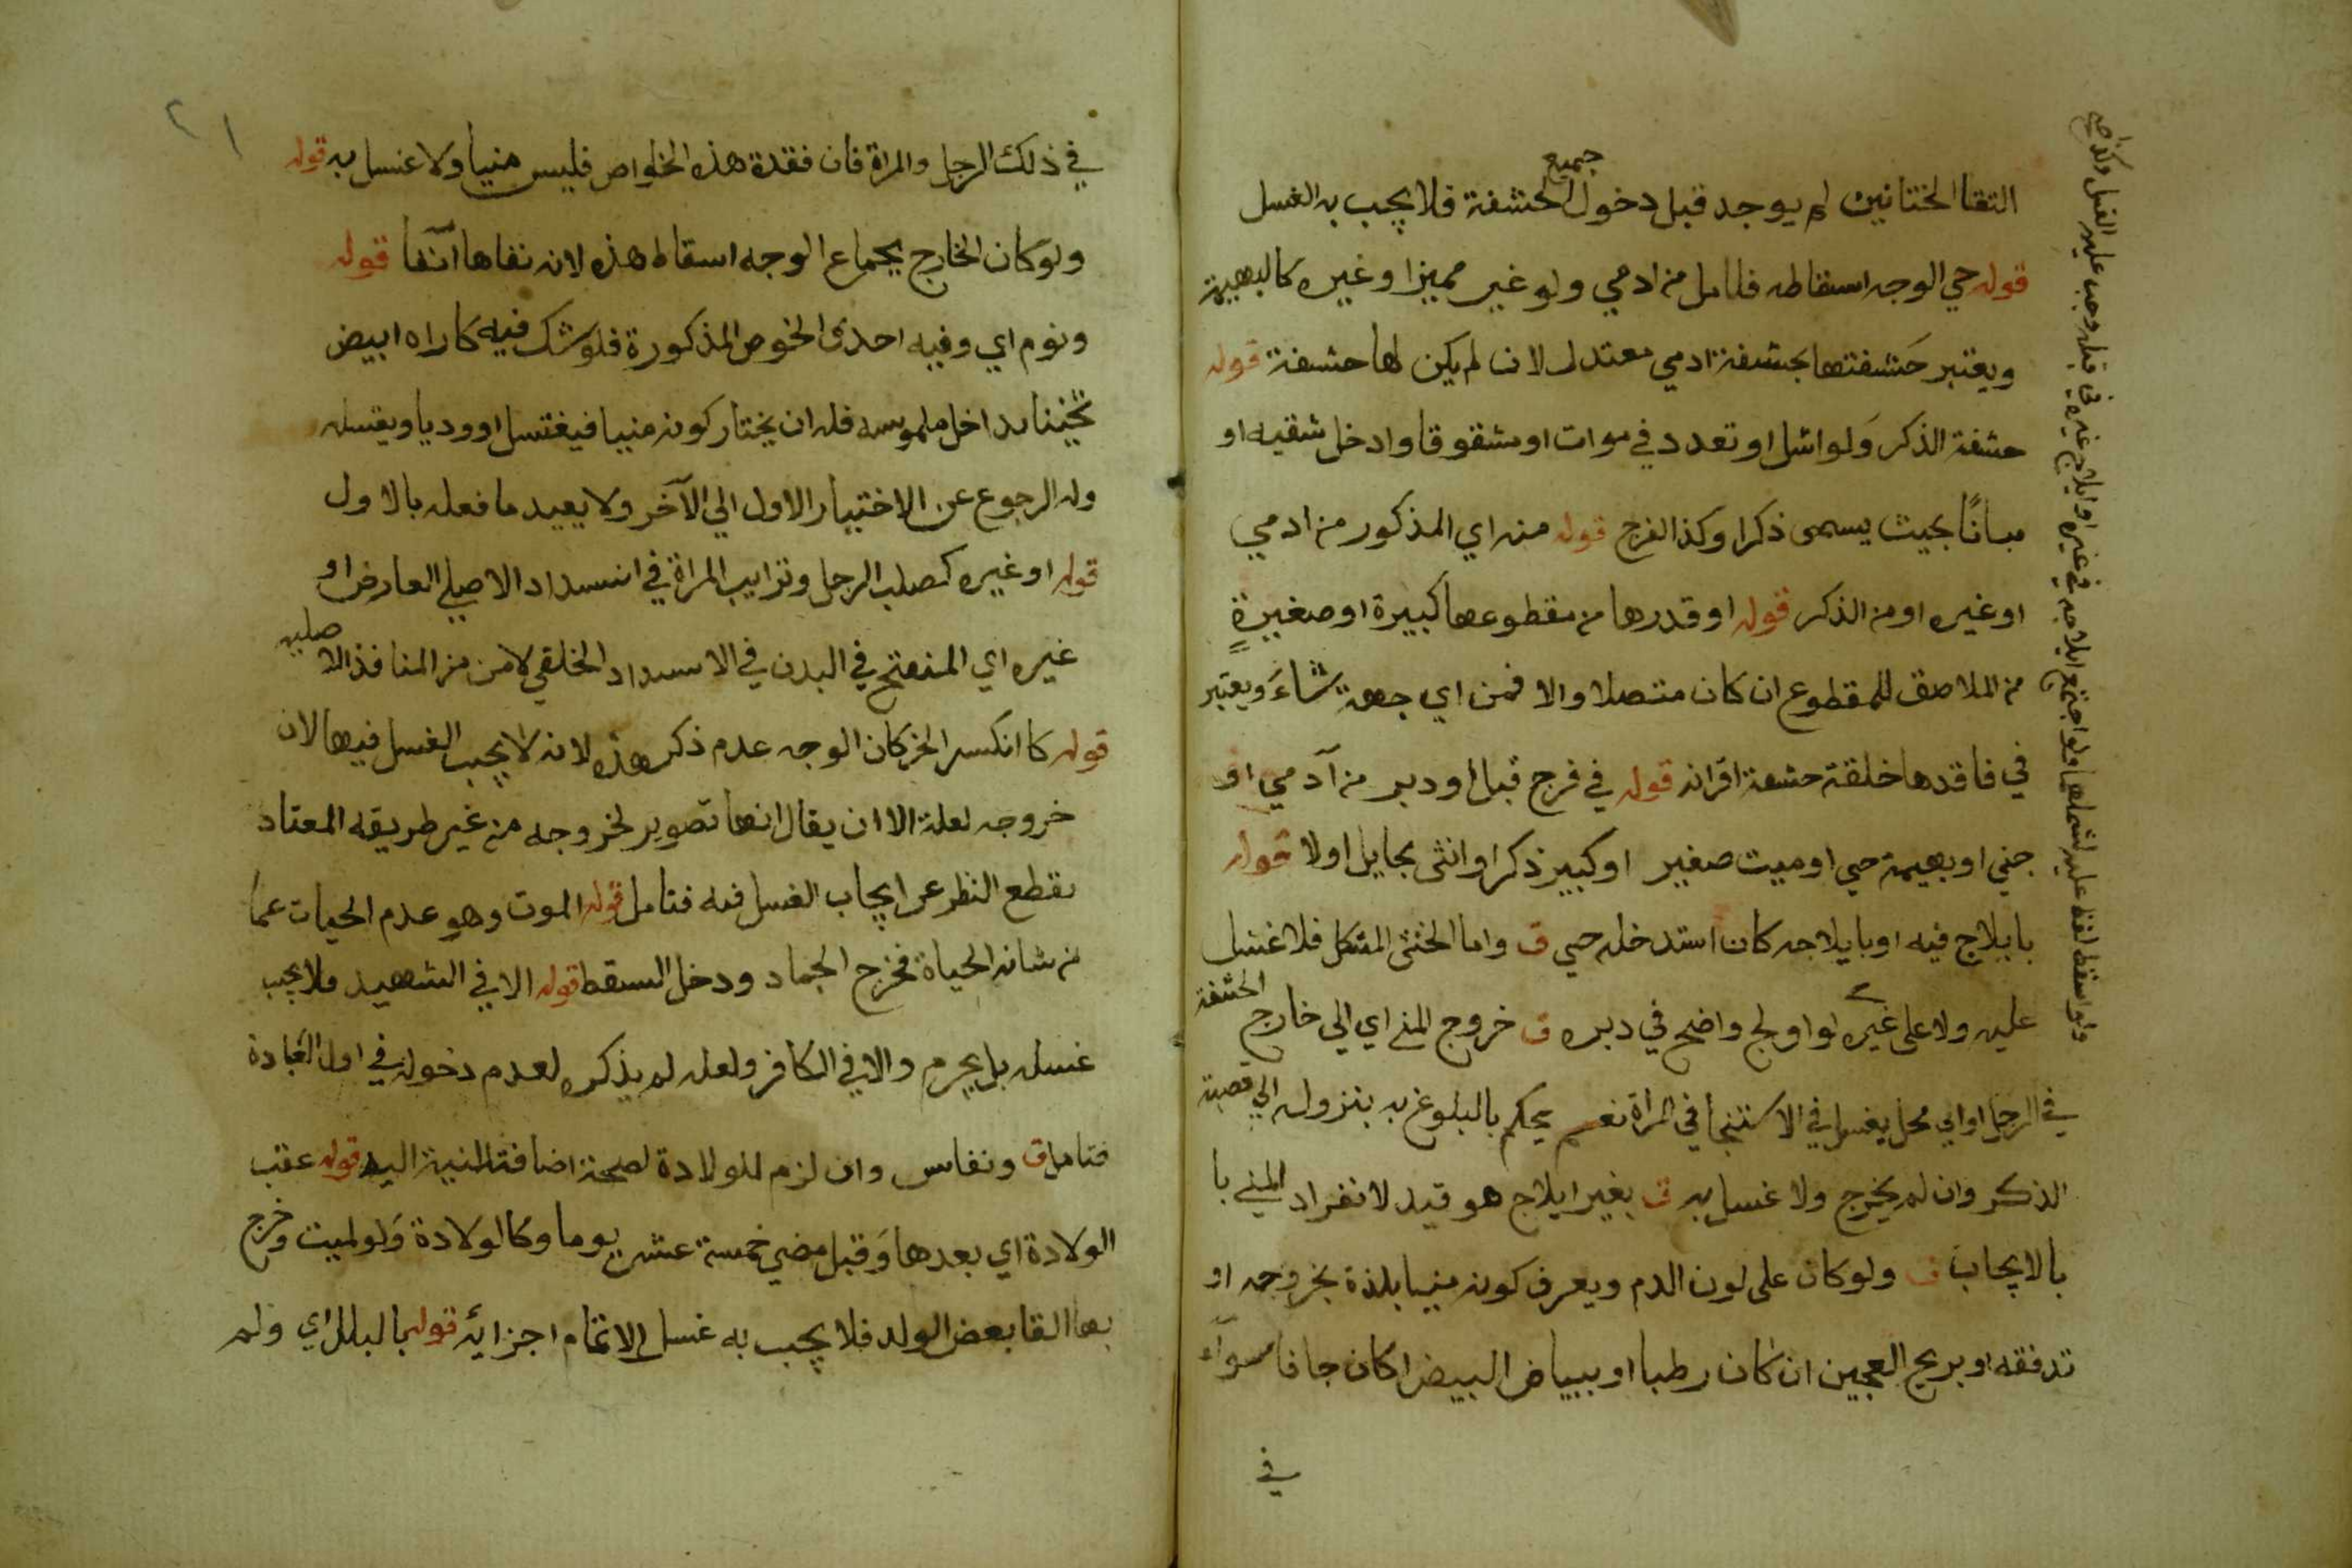 التقا الختانين لم يوجد قبل دخول جميع الحشفة فلا يجب به الغسل
قوله حي الوجه اسقاطه فتامل من ادمي ولو غير مميز او غيره كالبهيمة
ويعتبر حشفتها بحشفة ادمي معتدل لان لم يكن لها حشفة قوله
حشفة الذكر ولو اشل او تعدد في موات او مشقوقا وادخل شقيه او
مبانًا بحيث يسمى ذكرا وكذا الفرج قوله منه اي المذكور من ادمي
او غيره او من الذكر قوله او قدرها من مقطوعها كبيرة او صغيرة
من الملاصق للمقطوع ان كان متصلا والا فمن اي جهة شاء ويعتبر
في فاقدها خلقة حشفة اقرانه قوله في فرج قبل او دبر من آدمي او
جني او بهيمة حي او ميت صغير او كبير ذكر او انثى بحايل اولا قوله
بايلاج فيه او بايلاجه كان استدخله حي ق واما الخنثى المشكل فلا غسل
عليه ولا على غيره لو اولج واضح في دبره ق خروج المني اي الي خارج الحشفة
في الرجل او الي محل يغسل في الاستنجا في المراة نعم يحكم بالبلوغ به بنزوله الي قصبة
الذكر وان لم يخرج ولا غسل به ق بغير ايلاج هو قيد لانفراد المني با
بالايجاب ق ولو كان على لون الدم ويعرف كونه منيا بلذة بخروجه او
تدفقه او بريح العجين ان كان رطبا او ببياض البيض ا كان جافا سوآء
في
ولو اسقط لفظ عليه لشملها ولو اجتمع ايلاجه في غيره او ايلاج غيره في قبله وجب عليه الغسل
٢١
في ذلك الرجل والمراة فان فقدة هذه الخواص فليس منيا ولا غسل به قوله
ولو كان الخارج بجماع الوجه اسقاط هذه لانه نفاها آنفا قوله
ونوم اي وفيه احدى الخوص المذكورة فلو شك فيه كا راه ابيض
ثخينا بداخل ملبوسه فله ان يختار كونه منيا فيغتسل او وديا ويغسله
وله الرجوع عن الاختيار الاول الي الآخر ولا يعيد ما فعله بالاول
قوله او غيره كصلب الرجل وترايب المراة في انسداد الاصلي العارض او
غيره اي المنفتح في البدن في الاسداد الخلقي لا من من المنافذ الاصليه
قوله كا انكسر الخ كان الوجه عدم ذكر هذه لانه لا يجب الغسل فيها لان
خروجه لعلة الا ان يقال انها تصوير لخروجه من غير طريقه المعتاد
بقطع النظر عن ايجاب الغسل فيه فتامل قوله الموت وهو عدم الحيات عما
من شانه الحياة فخرج الجماد ودخل السقط قوله الا في الشهيد فلا يجب
غسله بل يحرم والا في الكافر ولعله لم يذكره لعدم دخوله في اول العبادة
فتامل ق ونفاس وان لزم للولادة لصحة اضافة النية اليه قوله عقب
الولادة اي بعدها وقبل مضي خمسة عشر يوما وكالولادة ولو لميت وخرج
بها القا بعض الولد فلا يجب به غسل الا تمام اجزائه قوله بالبلل اي ولم